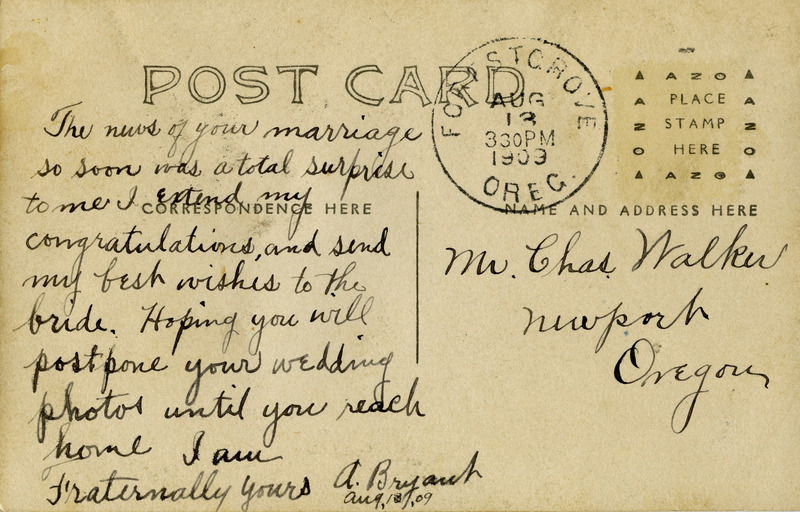 POST CARD
The news of your marriage
so soon was a total surprise
to me I extend my
CORRESPONDENCE HERE
congratulations, and send
my best wishes to the
bride. Hoping you will
postpone your wedding
photos until you reach
home I am
Fraternally yours A. Bryant
Aug, 13, 09
FOREST GROVE
AUG
13
330PM
1909
OREG.
AZO
PLACE
STAMP
HERE
AZO
AZO
AZO
NAME AND ADDRESS HERE
Mr. Chas. Walker
Newport
Oregon